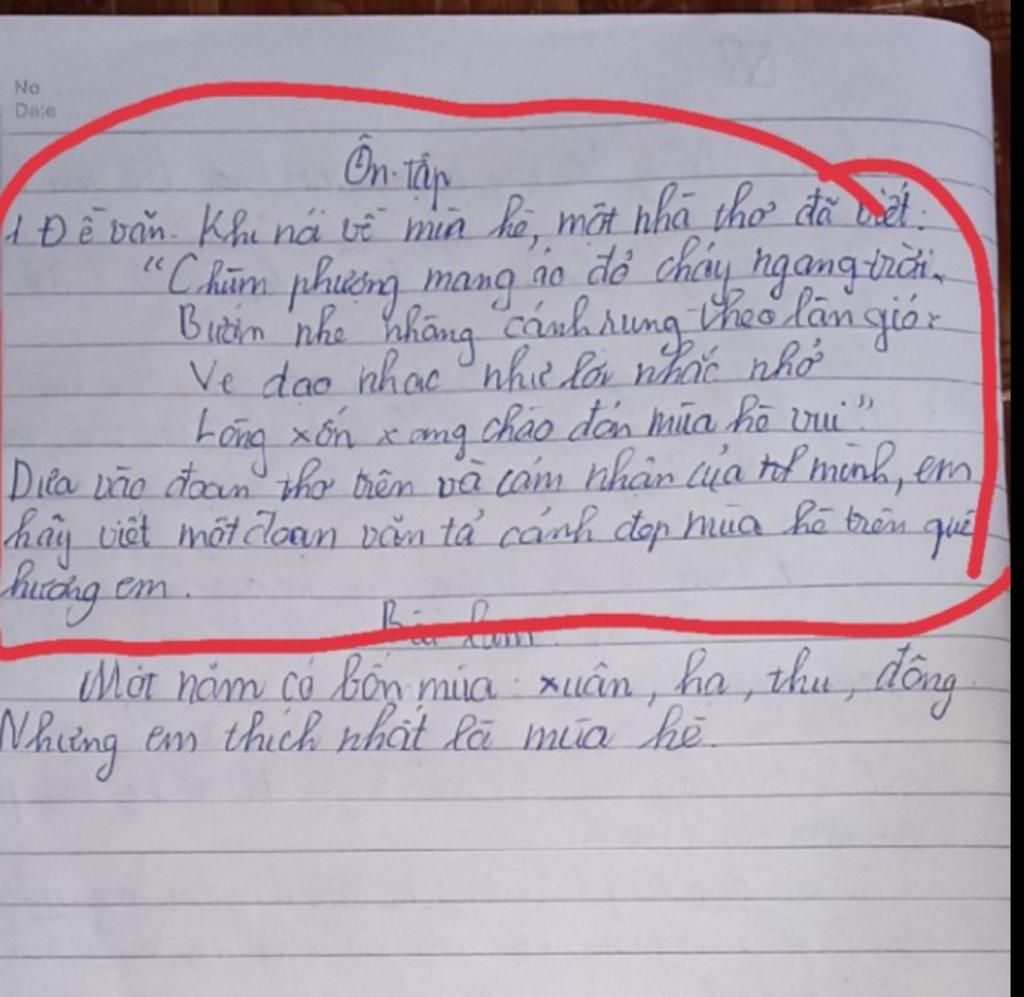 No
Date
Ôn tập
1 Đề văn. Khi nói về mùa hè, một nhà thơ đã viết:
"Chùm phượng mang áo đỏ cháy ngang trời.
Bướm nhẹ nhàng cánh rung theo làn gió.
Ve dạo nhạc như lời nhắc nhở
Lòng xốn xang chào đón mùa hè vui"
Dựa vào đoạn thơ trên và cảm nhận của mình, em
hãy viết một đoạn văn tả cảnh đẹp mùa hè trên quê
hương em.
Bài làm
Một năm có bốn mùa: xuân, hạ, thu, đông.
Nhưng em thích nhất là mùa hè.